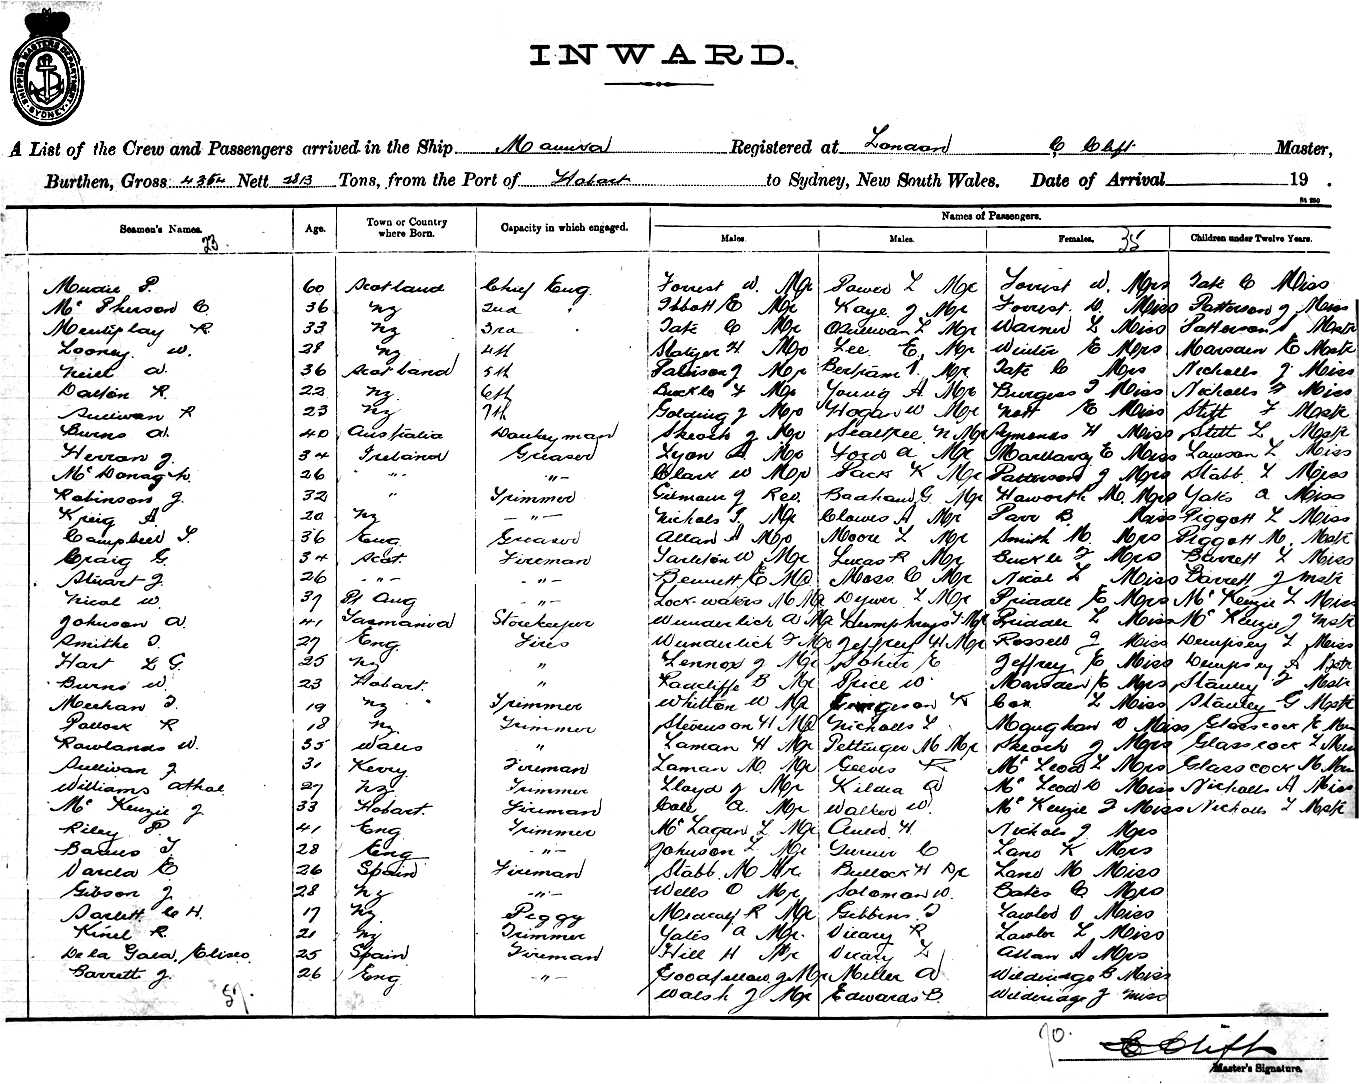 SHIPPING MASTERS DEPARTMENT SYDNEY
INWARD.
A List of the Crew and Passengers arrived in the Ship Manuka Registered at London C Clift Master,
Burthen, Gross 4364 Nett Tons, from the Port of Hobart to Sydney, New South Wales. Date of Arrival 19 .
Seamen's Names. Age. Town or Country where Born. Capacity in which engaged. Names of Passengers.
23. Males. Males. Females. 35 Children under Twelve Years.
Mudie P. 60 Scotland Chief Eng. Forrest W. Mr Power L Mr Forrest W. Mrs Tate C Miss
McPherson C. 36 NZ 2nd " Ibbott E Mr Kaye J Mr Forrest W. Miss Patterson J Miss
Mentiplay R 33 NZ 3rd Tate C Mr L Mr Warner L Miss Patterson Mastr
Looney W. 28 NZ 4th H Mr Lee E. Mr Winter E Mrs Marsden E Mastr
Neill W. 36 Scotland 5th J Mr Bertram Mr Tate C Mrs Nicholls J Miss
Dalton R. 22 NZ. 6th Buckle F Mr Young A Mr Burgess Miss Nicholls Miss
Sullivan R 23 NZ 7th Golding J Mr Hogan W Mr Nott E Miss Stitt F Mastr
Burns W. 40 Australia Donkeyman Skeoch J Mr N Mr Symonds H Miss Stitt L Mastr
Herran J. 34 Ireland Greaser Lyon A. Mr Ford A Mr E Miss Lawson L Miss
McDonagh. 26 " " -"- Clark W Mr Pack K Mr Patterson J Mrs Stabb L Miss
Robinson J. 32 " Trimmer Gilmour J Rev. G. Mr Haworth M. Mrs Yates A Miss
Kreig A 20 NZ -"- Nichols Mr Clowes A Mr Parr B. Miss Piggott L Miss
Campbell 36 Eng. Greaser Allan A Mr Moore L Mr Smith M. Mrs Piggott M. Mastr
Craig G. 34 Scot. Fireman Tarleton W Mr Lucas R Mr Buckle F Mrs Barrett L Miss
Stuart J. 26 -"- -"- Bennett E Mr Moss C Mr Nical L Miss Barrett J Mastr
Nicol W. 37 -"- M Mr Dwyer L Mr Priddle E Mrs McKenzie L Miss
Johnson A. 41 Tasmania Storekeeper Wunderlich A Mr Humphreys Mr Priddle L Miss McKenzie J Mastr
Smith 27 Eng. Fires Wunderlich Mr Jeffrey H Mr Rossell J Miss Dempsey L Miss
Hart L G. 25 NZ. " Lennox J Mr E Jeffrey E Miss Dempsey A Mastr
Burns W. 23 Hobart. " Radcliffe B Mr Price W. Marsden E Mrs Stanley Mastr
Meehan 19 NZ. Trimmer Whitton W Mr K Cox L Miss Stanley G Mastr
Pollock R 18 NZ. Trimmer Stevenson H Mr Nicholls L. Maughan Miss Glasscock E
Rowlands W. 35 Wales " Laman H Mr Pettinger M Mr Skeoch J Mrs Glasscock L
Sullivan J 31 Kerry. Fireman Laman M. Mr Reeves R McLeod L Mrs Glasscock M
Williams Athol 27 NZ Trimmer Lloyd J Mr Kildea A McLeod Miss Nicholls A Miss
McKenzie J 33 Hobart. Fireman Cole A. Mr Walker W. McKenzie Miss Nicholls L Mastr
Riley P. 41 Eng. Trimmer McLagan L Mr H. Nichols J Mrs
28 Eng -"- Johnson L Mr C Lane K Mrs
C. 26 Spain Fireman Stabb. M Mr. Bullock H Dr Lane M Miss
Gibson J. 28 NZ -"- Wells O Mr Soloman W. Bates C Mrs
C H. 17 NZ. Peggy Metcalf R Mr Gibbins Lawler Miss
R. 21 NZ Trimmer Yates A Mr. Vicary R Lawler L Miss
De la Gala, Eliseo 25 Spain Fireman Hill H Mr Vicary L Allan A Mrs
Barrett J. 26 Eng -"- Goodfellow J Mr Miller A Wildridge B Miss
57. Walsh J Mr Edwards B. Wildridge J Miss
90.
C Clift
Master's Signature.